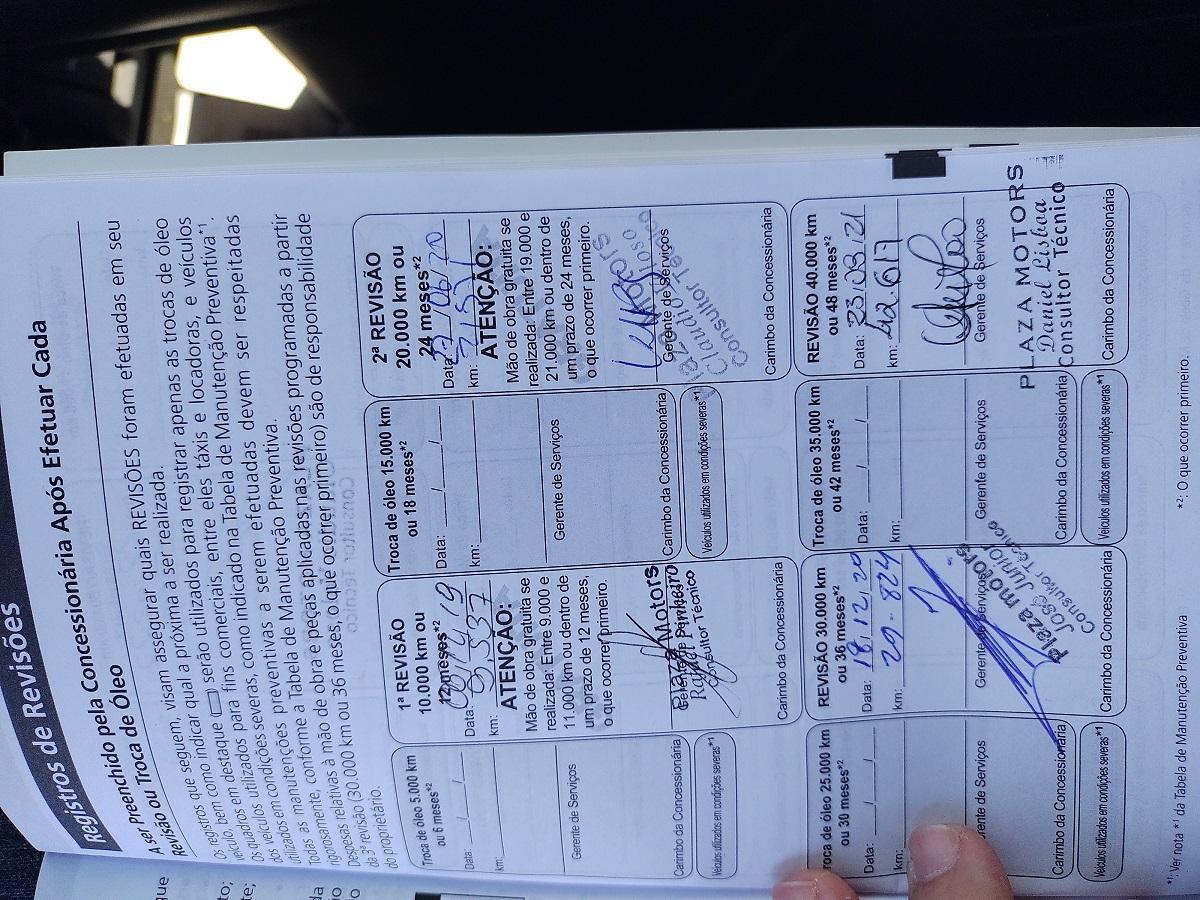 Registros de Revisões
A ser Preenchido pela Concessionária Após Efetuar Cada
Revisão ou Troca de Óleo
Os registros que seguem, visam assegurar quais REVISÕES foram efetuadas em seu
veículo, bem como indicar qual a próxima a ser realizada.
Os quadros em destaque serão utilizados para registrar apenas as trocas de óleo
dos veículos utilizados para fins comerciais, entre eles táxis e locadoras, e veículos
utilizados em condições severas, como indicado na Tabela de Manutenção Preventiva*¹.
Todas as manutenções preventivas a serem efetuadas devem ser respeitadas
rigorosamente, conforme a Tabela de Manutenção Preventiva.
Despesas relativas à mão de obra e peças aplicadas nas revisões programadas a partir
da 3ª revisão (30.000 km ou 36 meses, o que ocorrer primeiro) são de responsabilidade
do proprietário.
Troca de óleo 5.000 km
ou 6 meses*²
Data: / /
km:
Gerente de Serviços
Carimbo da Concessionária
Veículos utilizados em condições severas*¹
1ª REVISÃO
10.000 km ou
12 meses*²
Data:
km: 9.337
ATENÇÃO:
Mão de obra gratuita se
realizada: Entre 9.000 e
11.000 km ou dentro de
um prazo de 12 meses,
o que ocorrer primeiro.
Plaza Motors
Rafael Pinheiro
Consultor Técnico
Carimbo da Concessionária
Troca de óleo 15.000 km
ou 18 meses*²
Data: / /
km:
Gerente de Serviços
Carimbo da Concessionária
Veículos utilizados em condições severas*¹
2ª REVISÃO
20.000 km ou
24 meses*²
Data: /06/20
km:
ATENÇÃO:
Mão de obra gratuita se
realizada: Entre 19.000 e
21.000 km ou dentro de
um prazo de 24 meses,
o que ocorrer primeiro.
Gerente de Serviços
Plaza Motors
Consultor Técnico
Carimbo da Concessionária
Troca de óleo 25.000 km
ou 30 meses*²
Data: / /
km:
rente de Serviços
Carimbo da Concessionária
Veículos utilizados em condições severas*¹
REVISÃO 30.000 km
ou 36 meses*²
Data: 18.12.20
km: 29.824
Gerente de Serviços
Plaza motors
José Junior
Consultor Técnico
Carimbo da Concessionária
Troca de óleo 35.000 km
ou 42 meses*²
Data: / /
km:
Gerente de Serviços
Carimbo da Concessionária
Veículos utilizados em condições severas*¹
REVISÃO 40.000 km
ou 48 meses*²
Data: 23.08.21
km: 42.617
Gerente de Serviços
PLAZA MOTORS
Daniel Lisboa
Consultor Técnico
Carimbo da Concessionária
*¹: Ver nota *¹ da Tabela de Manutenção Preventiva
*²: O que ocorrer primeiro.